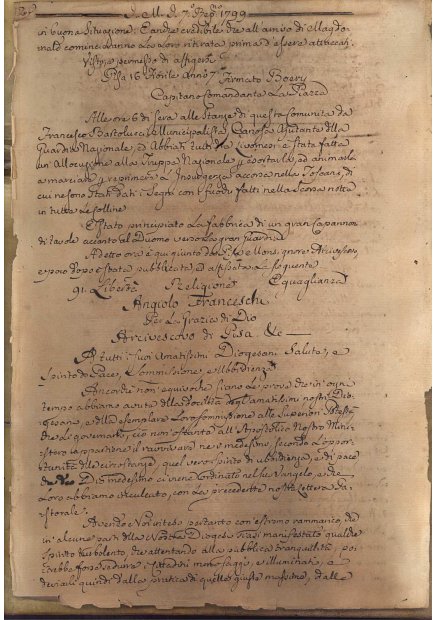 1799
in buona Situazione; E anche credibile che all'arrivo di Magdo-
nald comincieranno la loro ritirata prima d'essere attaccati
Visto, e permesso di affigersi
Pisa 16 Aprile Anno 7° Firmato Boery
Capitano Comandante La Piazza
Alle ore 6 di sera alle Stanze di questa Comunità da
Francesco Bartolucci Municipalista Aiutante della
Guardia Nazionale, ed tutti da Livornesi è stata fatta
un'Allocuzione alla Truppa Nazionale esortarla, ed animarla
a marciare, e reprimere l'Insurgenza accorsa nella Toscana, di
cui ne sono stati dati i Segni con i fuochi fatti nella scorsa notte
in tutte le colline
È stato principiato la fabbrica di un gran Capannone
di tavole accanto al Duomo verso la gran Guardia
A dett'ora è qui giunto da Monsignore Arcivescovo,
e poco dopo è stata pubblicata, ed affissata la seguente
91. Libertà Religione Eguaglianza
Angiolo Franceschi
Per La Grazia di Dio
Arcivescovo di Pisa &c
A tutti i Suoi Amatissimi Diogesani Salute, e
Spirito di Pace, Sommissione, e Ubbidienza
Ancorchè non equivoche siano le prove che in ogni
tempo abbiamo avuta della docilità degli amatissimi nostri Dio-
gesani, e della esemplare loro sommissione alle Superiori Potestà
che le governano, ciò non ostante all'Apostolico Nostro Mini-
stero si appartiene il ravvivare ne' medesimi secondo l'oppor-
tunità delle circostanze, quel vero spirito di ubbidienza, e di pace
che Dio medesimo ci viene ordinato nel suo Vangelo, e che
Loro abbiamo inculcato, con la precedente nostra Lettera Pa-
storale:
Avendo Noi inteso pertanto con estremo rammarico, che
in alcune parti della Nostra Diogesi siasi manifestato qualche
spirito turbolento che attentando alla pubblica tranquillità, po-
trebbe forse sedurre i Cittadini meno saggi, e illuminati, e
deviarli quindi dalla pratica di quelle giuste massime, dalle